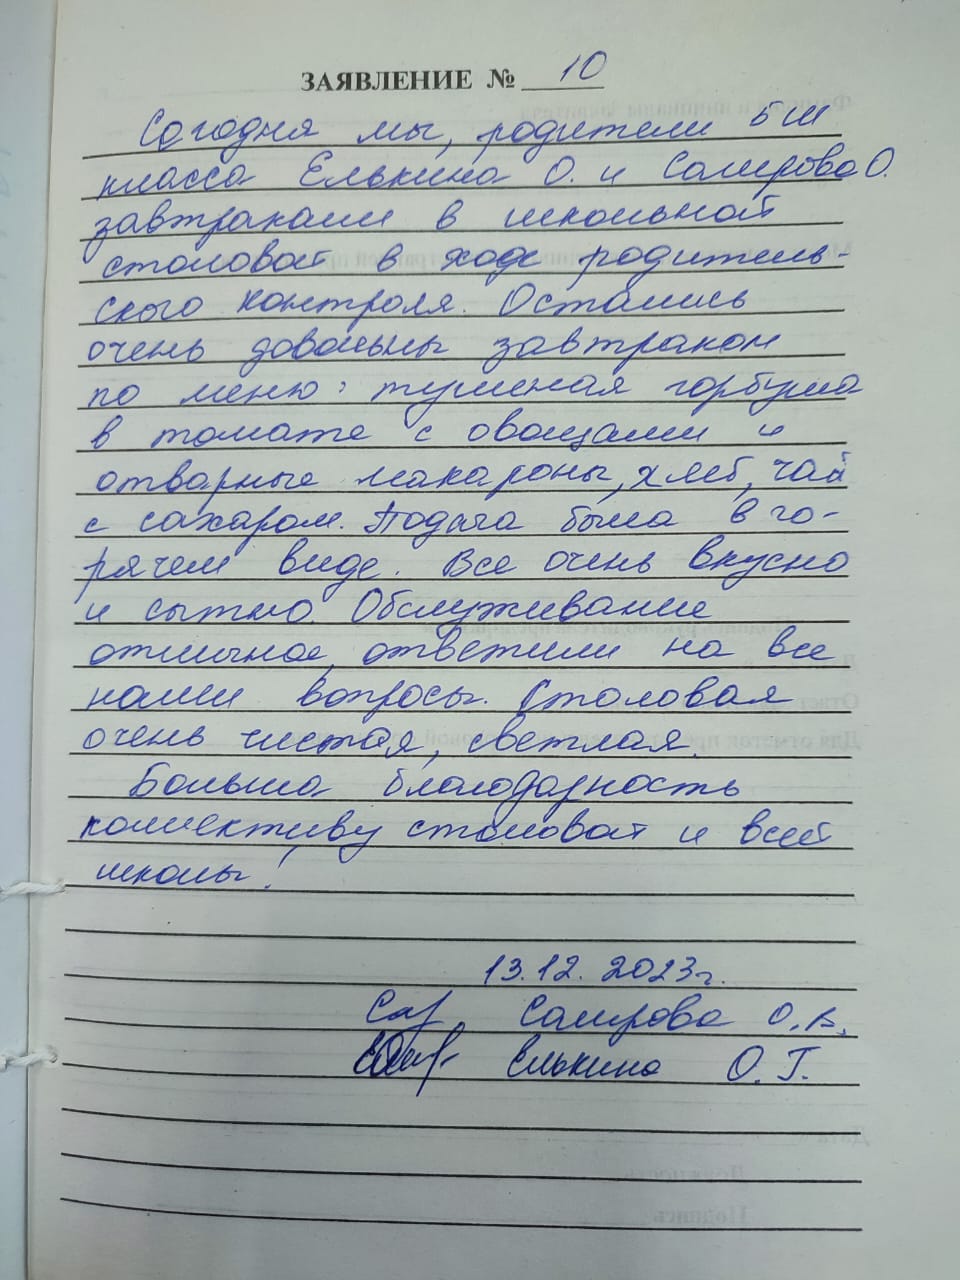 ЗАЯВЛЕНИЕ № 10
Сегодня мы, родители 5 Ш
класса Елькина О. и Саирова О.
завтракали в школьной
столовой в ходе родитель-
ского контроля. Остались
очень довольны завтраком
по меню: тушеная горбуша
в томате с овощами и
отварные макароны, хлеб, чай
с сахаром. Подача была в го-
рячем виде. Все очень вкусно
и сытно. Обслуживание
отличное, ответили на все
наши вопросы. Столовая
очень чистая, светлая.
Больша благодарность
коллективу столовой и всей
школы!
13.12.2023г.
Саирова О.В.
Елькина О.Г.